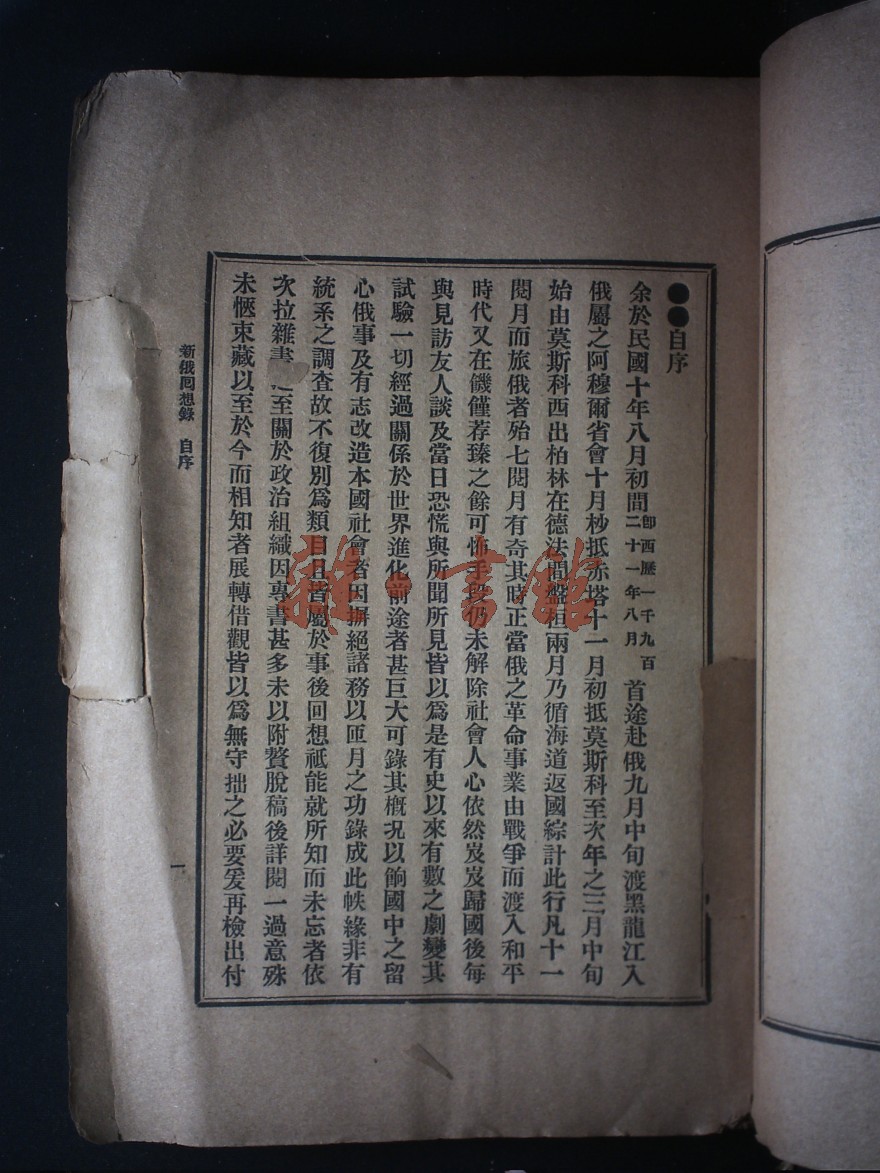 ●●自序
余於民國十年八月初間卽西歷一千九百二十一年八月首途赴俄九月中旬渡黑龍江入
俄屬之阿穆爾省會十月杪抵赤塔十一月初抵莫斯科至次年之三月中旬
始由莫斯科西出柏林在德法間盤桓兩月乃循海道返國綜計此行凡十一
閱月而旅俄者殆七閱月有奇其時正當俄之革命事業由戰爭而渡入和平
時代又在饑饉荐臻之餘可怖手段仍未解除社會人心依然岌岌歸國後每
與見訪友人談及當日恐慌與所聞所見皆以爲是有史以來有數之劇變其
試驗一切經過關係於世界進化前途者甚巨大可錄其概况以餉國中之留
心俄事及有志改造本國社會者因摒絕諸務以匝月之功錄成此帙緣非有
統系之調查故不復別爲類目且皆屬於事後回想祗能就所知而未忘者依
次拉雜書之至關於政治組織因專書甚多未以附贅脫稿後詳閱一過意殊
未愜束藏以至於今而相知者展轉借觀皆以爲無守拙之必要爰再檢出付
新俄回想錄 自序
一
雜·書館